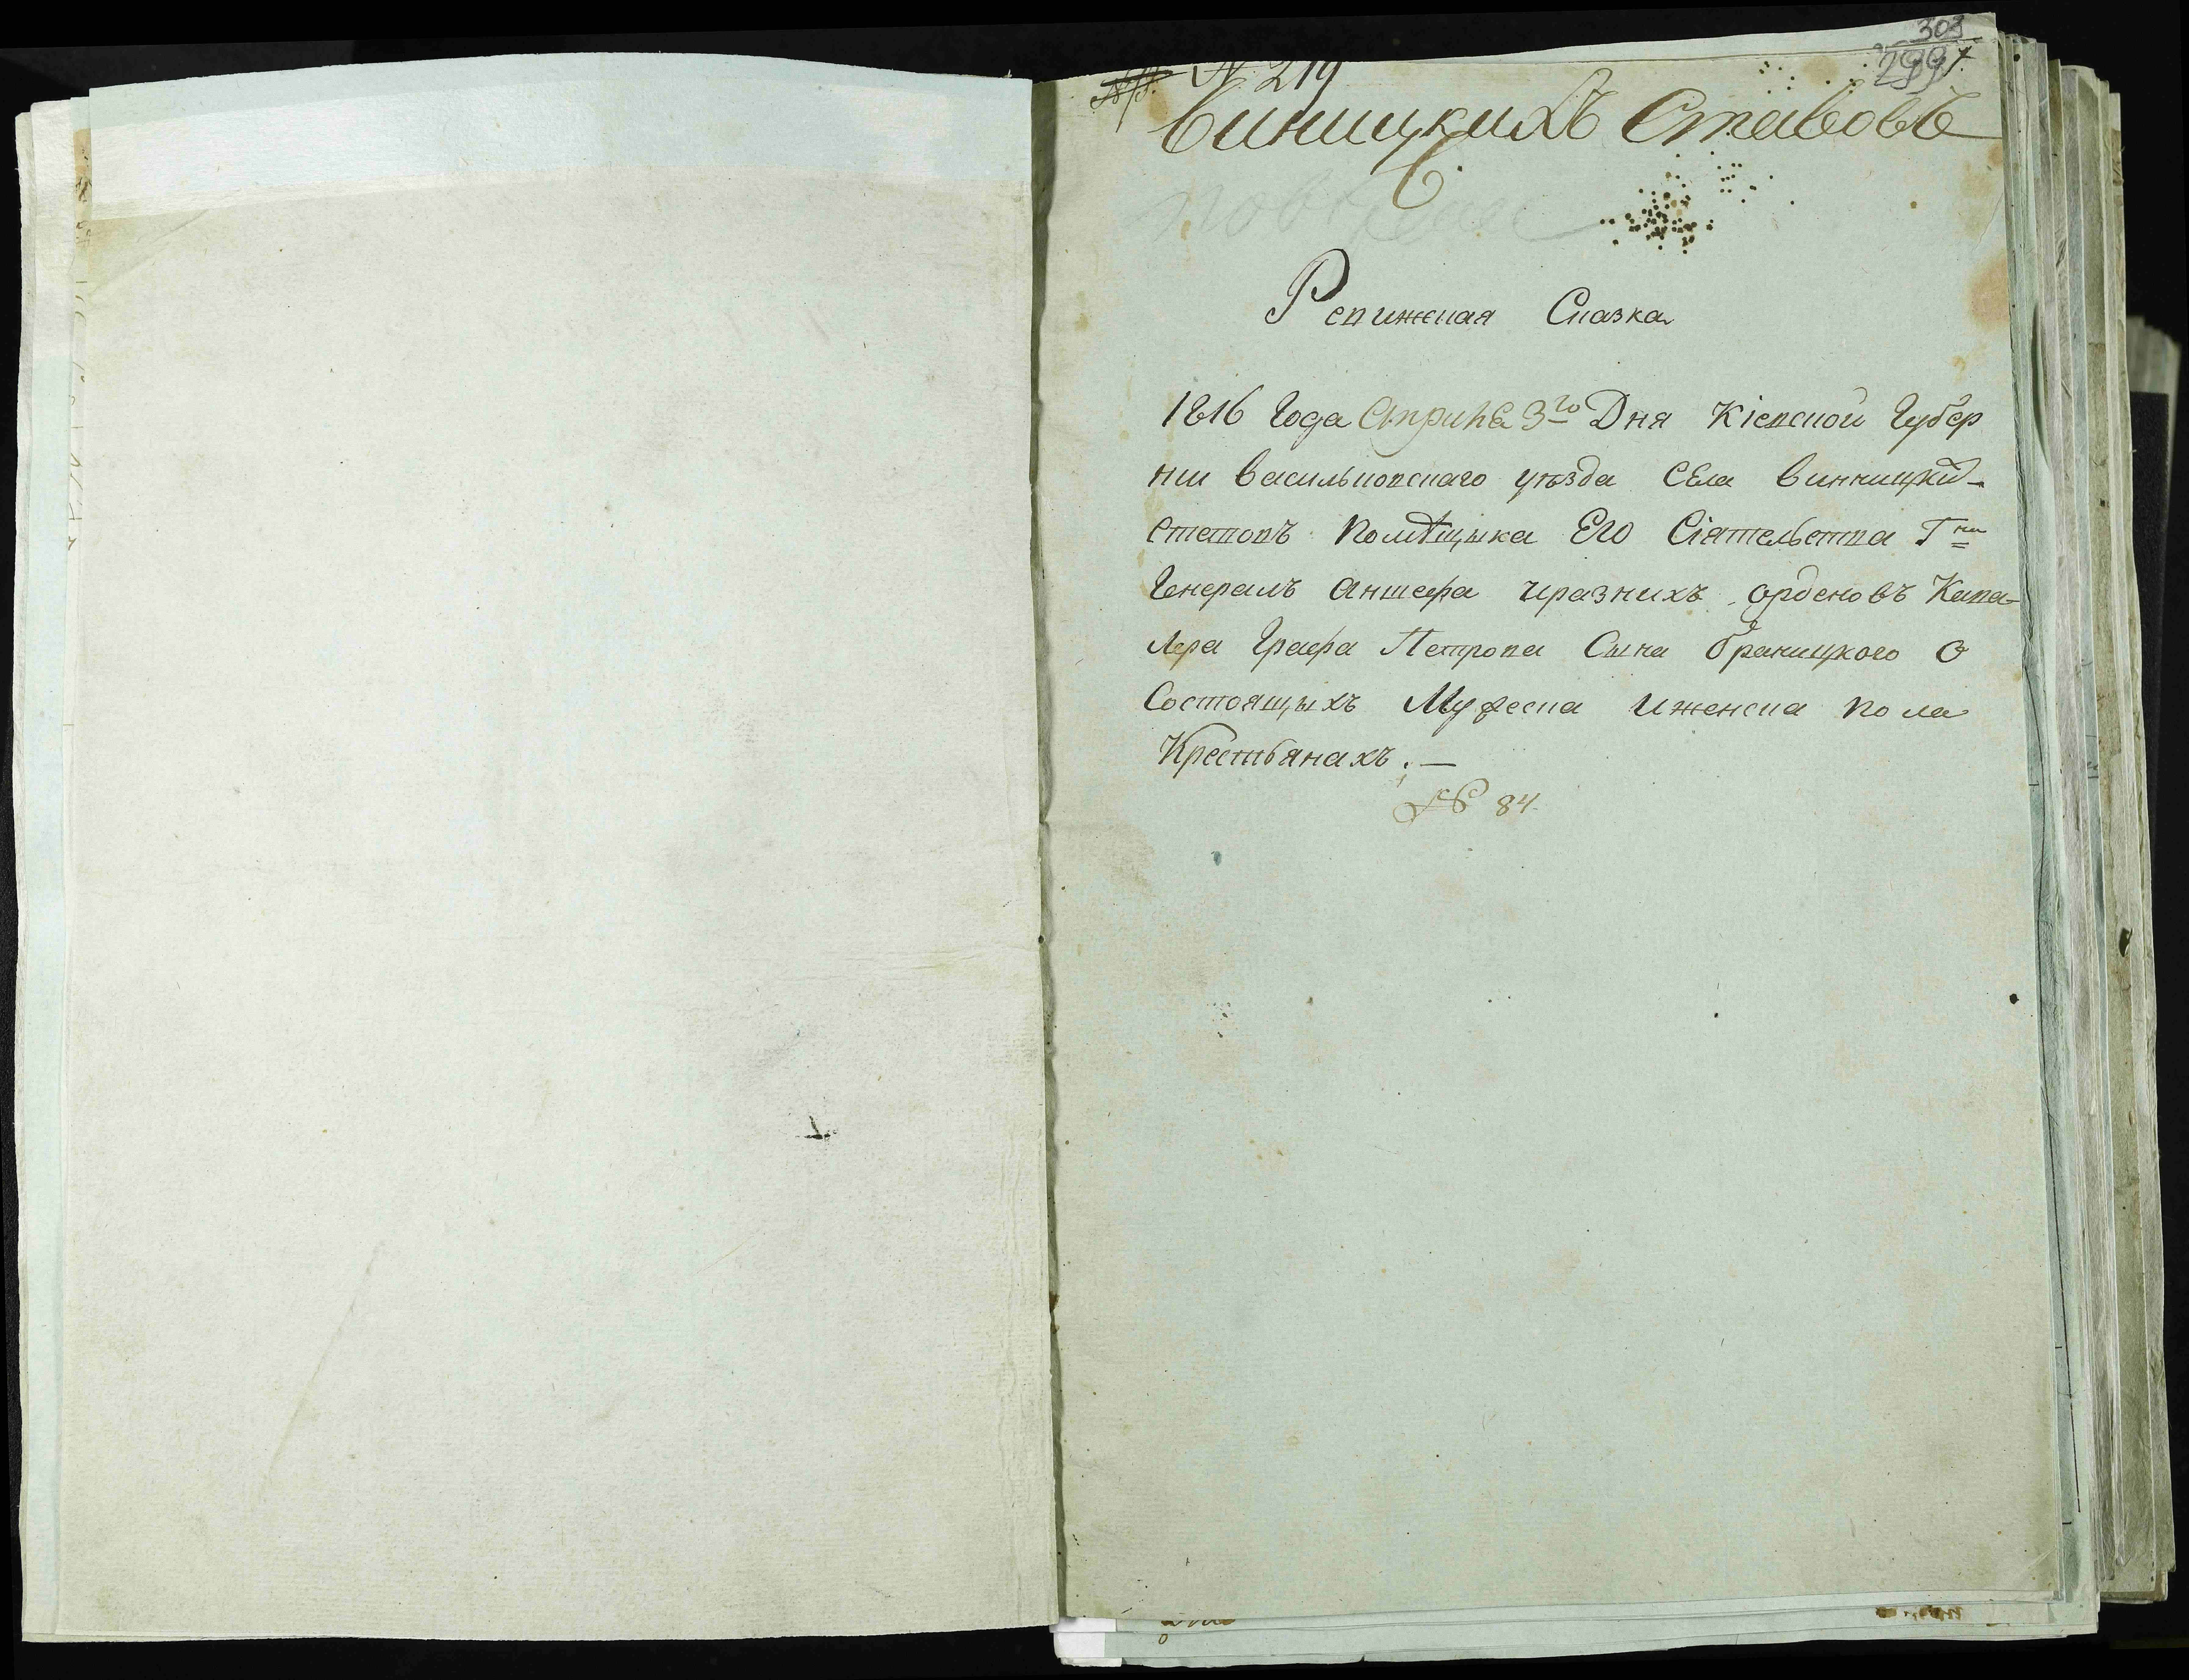 303
299
N 219
Виницкихъ Ставовъ
Ревижская Сказка
1816 Года Априля 3го Дня Кіевской Губер
ни Васильковскаго уѣзда Села Винницки-
Ставовъ Помѣщыка Его Сіятельства Гна
Генералъ Аншефа иразнихъ орденовъ Кава-
лера Графа Петрова Сына Браницкого О
Состоящыхъ Мужеска иженска пола
Крестьянахъ.—
№ 84